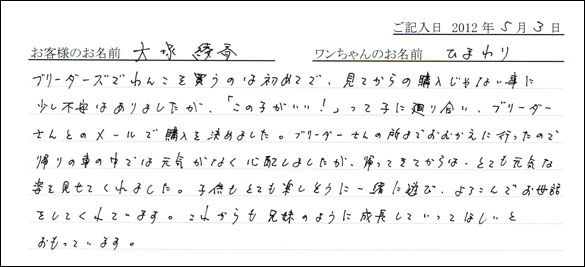 ご記入日 2012 年 5 月 3 日
お客様のお名前 大塚 綾香 ワンちゃんのお名前 ひまわり
ブリーダーズでわんこを買うのは初めてで、見てからの購入じゃない事に
少し不安はありましたが、「この子がいい!」って子に廻り合い、ブリーダー
さんとのメールで購入を決めました。ブリーダーさんの所までおむかえに行ったので
帰りの車の中では元気がなく心配しましたが、帰ってきてからは、とても元気な
姿を見せてくれました。子供もとても楽しそうに一緒に遊び、よろこんでお世話
をしてくれています。これからも兄妹のように成長していってほしいと
おもっています。